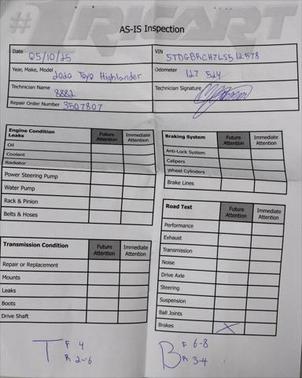 #1 RT
AS-IS Inspection
Date 05/10/25
VIN
Year, Make, Model 2020 Toyo Highlander
Odometer 127 524
Technician Name 8881
Technician Signature
Repair Order Number 3507807
Engine Condition
Leaks Future Attention Immediate Attention
Oil
Coolant
Radiator
Power Steering Pump
Water Pump
Rack & Pinion
Belts & Hoses
Transmission Condition Future Attention Immediate Attention
Repair or Replacement
Mounts
Leaks
Boots
Drive Shaft
Braking System Future Attention Immediate Attention
Anti-Lock System
Calipers
Wheel Cylinders
Brake Lines
Road Test Future Attention Immediate Attention
Performance
Exhaust
Transmission
Noise
Drive Axle
Steering
Suspension
Ball Joints
Brakes X
T F 4
R 2-6
B F 6-8
R 3-4